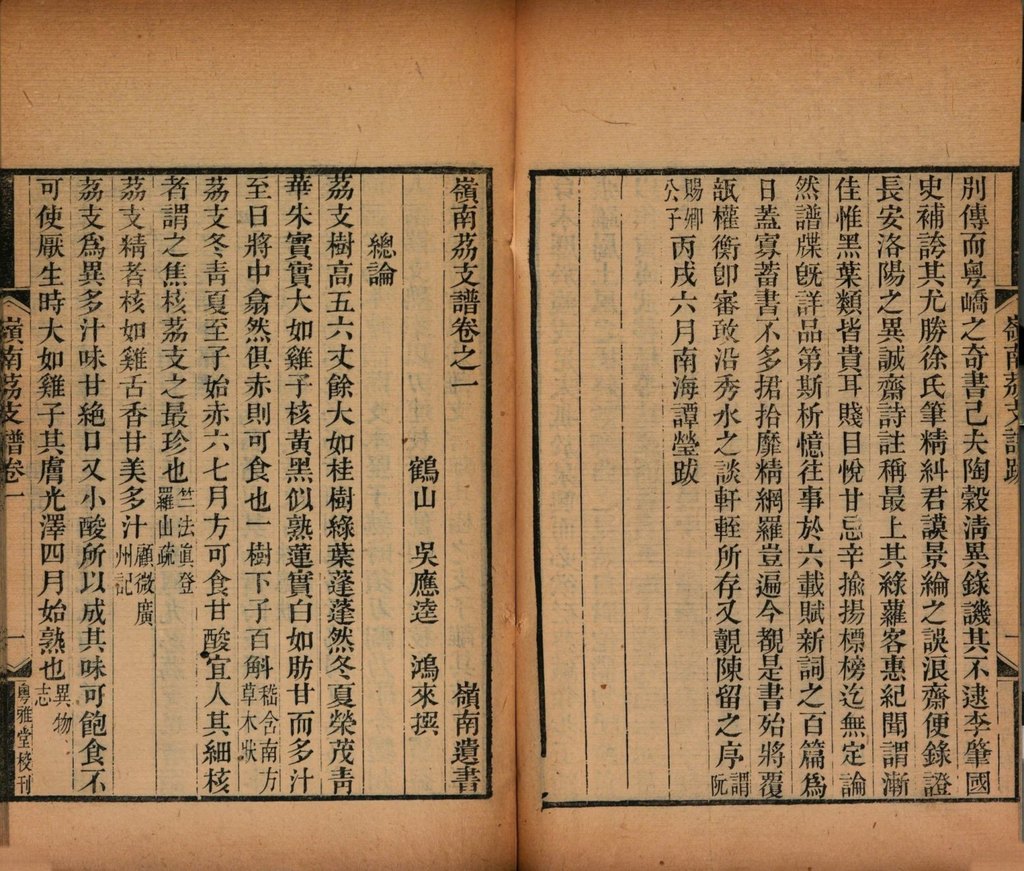 別傳而粵嶠之奇書己夫陶穀淸異錄譏其不逮李肇國
史補誇其尤勝徐氏筆精糾君謨景綸之誤浪齋便錄證
長安洛陽之異誠齋詩註稱最上其綠蘿客惠紀聞謂漸
佳惟黑葉類皆貴耳賤目悅甘忌辛揄揚標榜迄無定論
然譜牒旣詳品第斯析憶往事於六載賦新詞之百篇爲
日蓋寡蓄書不多捃拾靡精網羅豈遍今覩是書殆將覆
瓿權衡卽審敢沿秀水之談軒輊所存又覿陳留之序謂阮
賜卿公子丙戌六月南海譚瑩跋
嶺南荔支譜跋
嶺南荔支譜卷之一 嶺南遺書
鶴山 吳應逵 鴻來撰
總論
荔支樹高五六丈餘大如桂樹綠葉蓬蓬然冬夏榮茂靑
華朱實實大如雞子核黃黑似熟蓮實白如肪甘而多汁
至日將中翕然俱赤則可食也一樹下子百斛嵇含南方草木狀
荔支冬靑夏至子始赤六七月方可食甘酸宜人其細核
者謂之焦核荔支之最珍也竺法眞登羅山疏
荔支精者核如雞舌香甘美多汁顧微廣州記
荔支爲異多汁味甘絶口又小酸所以成其味可飽食不
可使厭生時大如雞子其膚光澤四月始熟也異物志
嶺南荔支譜卷一
一
粵雅堂校刊